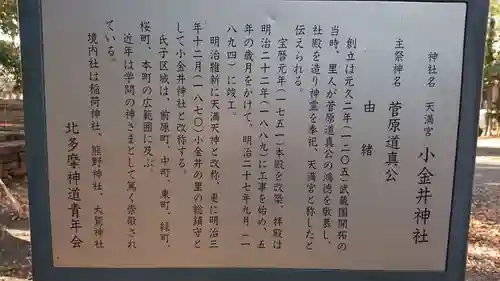 神社名　天満宮　小金井神社
主祭神名　菅原道真公
由緒
創立は元久二年(一二〇五)武蔵国開拓の
当時、里人が菅原道真公の鴻徳を敬慕し、
社殿を造り神霊を奉祀、天満宮と称したと
伝えられる。
宝暦元年(一七五一)本殿を改築、拝殿は
明治二十二年(一八八九)に工事を始め、五
年の歳月をかけて、明治二十七年九月(一
八九四)に竣工。
明治維新に天満天神と改称、更に明治三
年十二月(一八七〇)小金井の里の総鎮守と
して小金井神社と改称する。
氏子区域は、前原町、中町、東町、緑町、
桜町、本町の広範囲に及ぶ。
近年は学問の神さまとして篤く崇敬され
ている。
境内社は稲荷神社、熊野神社、大鷲神社
北多摩神道青年会